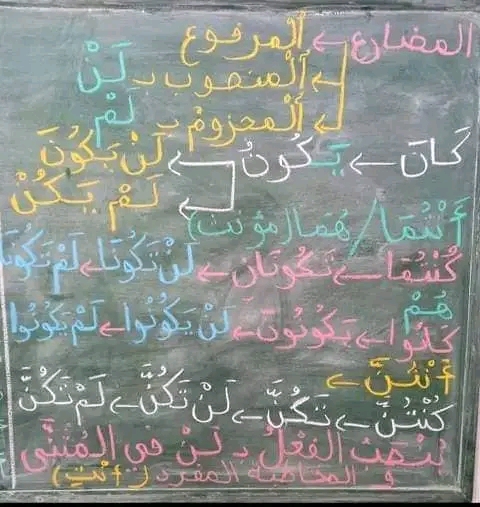 المضارع ← المرفوع
← المنصوب بـ لَنْ
← المجزوم بـ لَمْ
كَانَ ← يَكُونُ ← لَنْ يَكُونَ
← لَمْ يَكُنْ
أَنْتُمَا / هُمَا (مؤنث)
كُنْتُمَا ← تَكُونَانِ ← لَنْ تَكُونَا ← لَمْ تَكُونَا
هُمْ
كَانُوا ← يَكُونُونَ ← لَنْ يَكُونُوا ← لَمْ يَكُونُوا
أَنْتُنَّ ←
كُنْتُنَّ ← تَكُنَّ ← لَنْ تَكُنَّ ← لَمْ تَكُنَّ
يُنْصَبُ الفِعْلُ بـ لَنْ فِي المُثَنَّى
و المخاطبة المفرد (أنتِ)